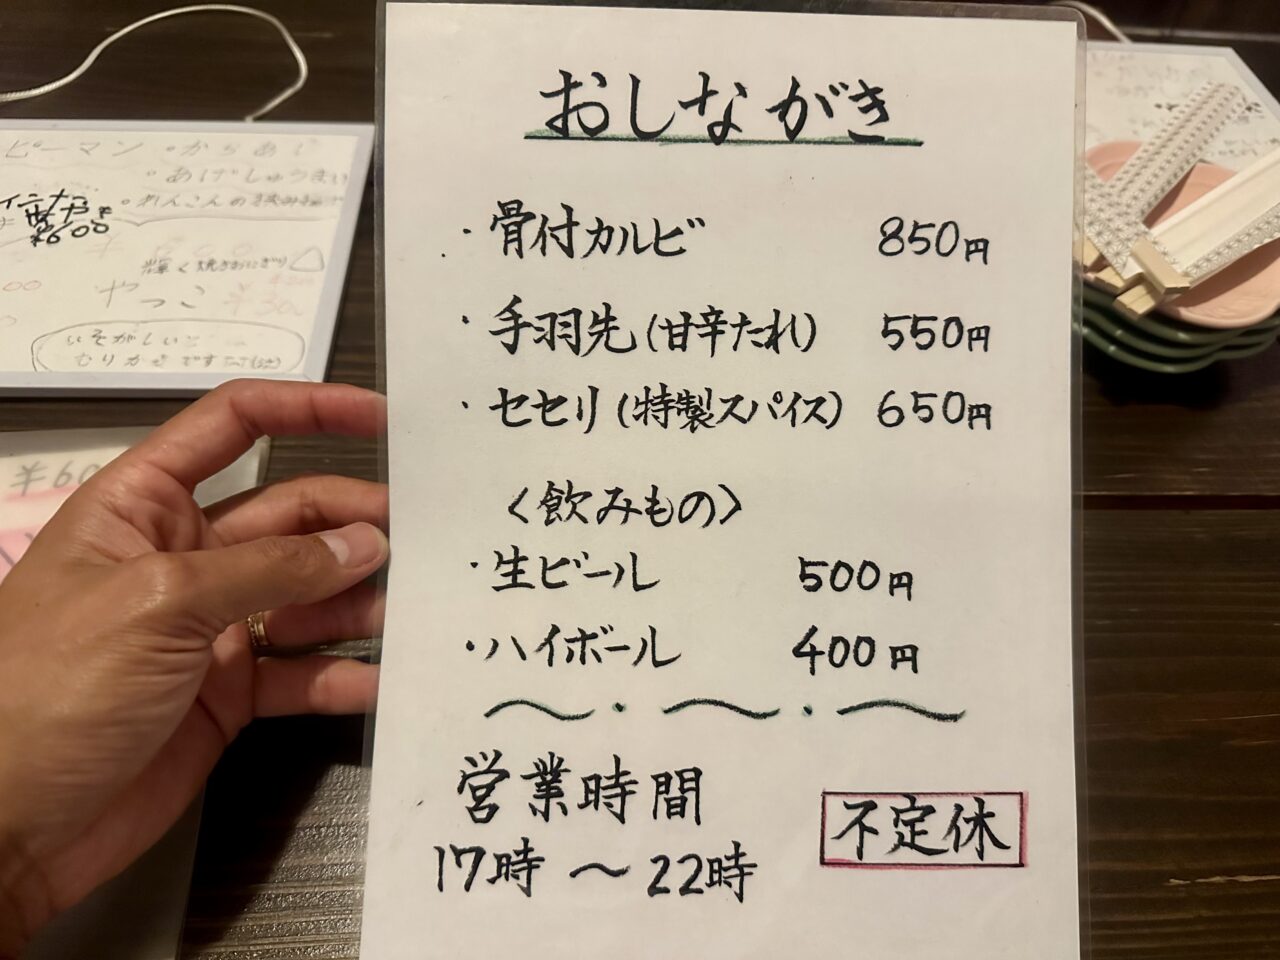 おしながき
・骨付カルビ 850円
・手羽先(甘辛たれ) 550円
・セセリ(特製スパイス) 650円
〈飲みもの〉
・生ビール 500円
・ハイボール 400円
〜・〜・〜
営業時間
17時 〜 22時
不定休
ピーマン ・からあげ
・あげしゅうまい
・れんこんの挟み揚げ
¥600
輝く焼きおにぎり
やっこ ¥300
いそがしいと
むりかもです
¥60